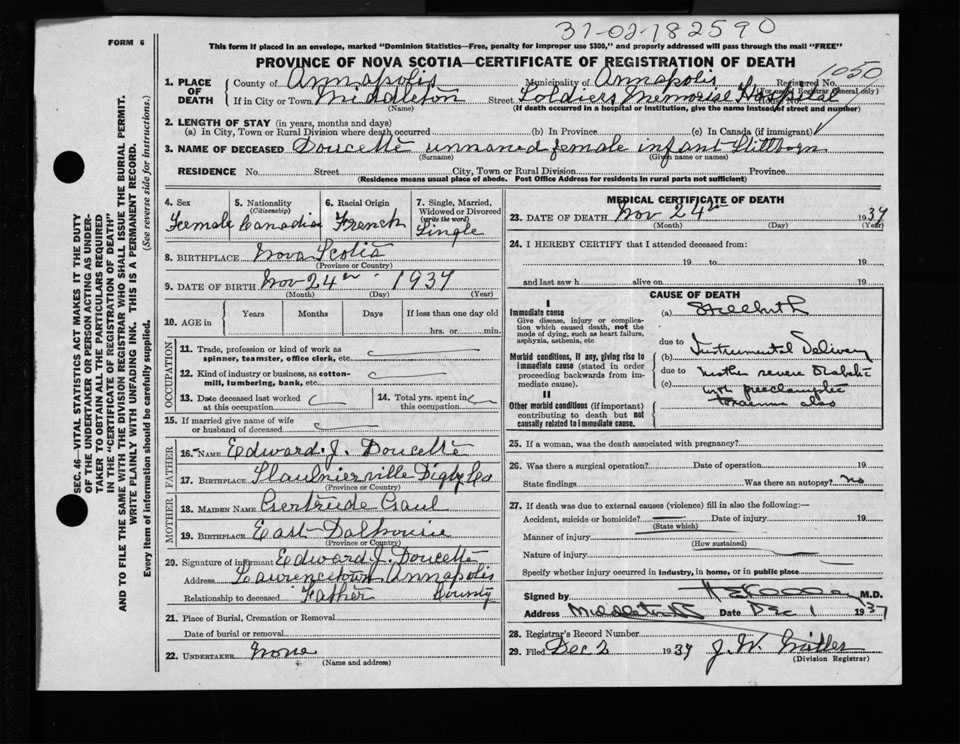 31-02-182590
FORM 6
This form if placed in an envelope, marked "Dominion Statistics—Free, penalty for improper use $300," and properly addressed will pass through the mail "FREE"
PROVINCE OF NOVA SCOTIA—CERTIFICATE OF REGISTRATION OF DEATH
1050
1. PLACE OF DEATH County of Annapolis Municipality of Annapolis Registered No.
(For use of Registrar General only)
If in City or Town Middleton Street Soldiers Memorial Hospital House No.
(Name) (If death occurred in a hospital or institution, give the name instead of street and number)
2. LENGTH OF STAY (in years, months and days)
(a) In City, Town or Rural Division where death occurred (b) In Province (c) In Canada (if immigrant)
3. NAME OF DECEASED Doucette unnamed female infant Stillborn
(Surname) (Given name or names)
RESIDENCE No. Street City, Town or Rural Division Province
(Residence means usual place of abode. Post Office Address for residents in rural parts not sufficient)
SEC. 46—VITAL STATISTICS ACT MAKES IT THE DUTY
OF THE UNDERTAKER OR PERSON ACTING AS UNDER-
TAKER TO OBTAIN ALL THE PARTICULARS REQUIRED
IN THE "CERTIFICATE OF REGISTRATION OF DEATH"
AND TO FILE THE SAME WITH THE DIVISION REGISTRAR WHO SHALL ISSUE THE BURIAL PERMIT.
WRITE PLAINLY WITH UNFADING INK. THIS IS A PERMANENT RECORD.
Every item of information should be carefully supplied. (See reverse side for instructions.)
4. Sex 5. Nationality (Citizenship) 6. Racial Origin 7. Single, Married, Widowed or Divorced (write the word)
Female Canadian French Single
8. BIRTHPLACE Nova Scotia
(Province or Country)
9. DATE OF BIRTH Nov 24th 1937
(Month) (Day) (Year)
10. AGE in Years Months Days If less than one day old
hrs. or min.
OCCUPATION
11. Trade, profession or kind of work as spinner, teamster, office clerk, etc.
12. Kind of industry or business, as cotton-mill, lumbering, bank, etc.
13. Date deceased last worked at this occupation 14. Total yrs. spent in this occupation
15. If married give name of wife or husband of deceased
FATHER
16. NAME Edward J. Doucette
17. BIRTHPLACE Digby Co
(Province or Country)
MOTHER
18. MAIDEN NAME Gertrude Gaul
19. BIRTHPLACE East Dalhousie
(Province or Country)
20. Signature of informant Edward J. Doucette
Address Lawrencetown Annapolis
Relationship to deceased Father County
21. Place of Burial, Cremation or Removal
Date of burial or removal
22. UNDERTAKER None
(Name and address)
MEDICAL CERTIFICATE OF DEATH
23. DATE OF DEATH Nov 24th 1937
(Month) (Day) (Year)
24. I HEREBY CERTIFY that I attended deceased from:
19 to 19
and last saw h alive on 19
CAUSE OF DEATH
I
Immediate cause
Give disease, injury or complication which caused death, not the mode of dying, such as heart failure, asphyxia, asthenia, etc.
(a) Stillbirth
due to
Morbid conditions, if any, giving rise to immediate cause (stated in order proceeding backwards from immediate cause).
(b) Instrumental Delivery
due to mother severe diabetic
(c) with preeclamptic
toxaemia also
II
Other morbid conditions (if important) contributing to death but not causally related to immediate cause.
25. If a woman, was the death associated with pregnancy?
26. Was there a surgical operation? Date of operation 19
State findings Was there an autopsy? no
27. If death was due to external causes (violence) fill in also the following:—
Accident, suicide or homicide? Date of injury 19
(State which)
Manner of injury
(How sustained)
Nature of injury
Specify whether injury occurred in industry, in home, or in public place
Signed by M.D.
Address Middleton Date Dec 1 1937
28. Registrar's Record Number
29. Filed Dec 2 1937 J. W.
(Division Registrar)